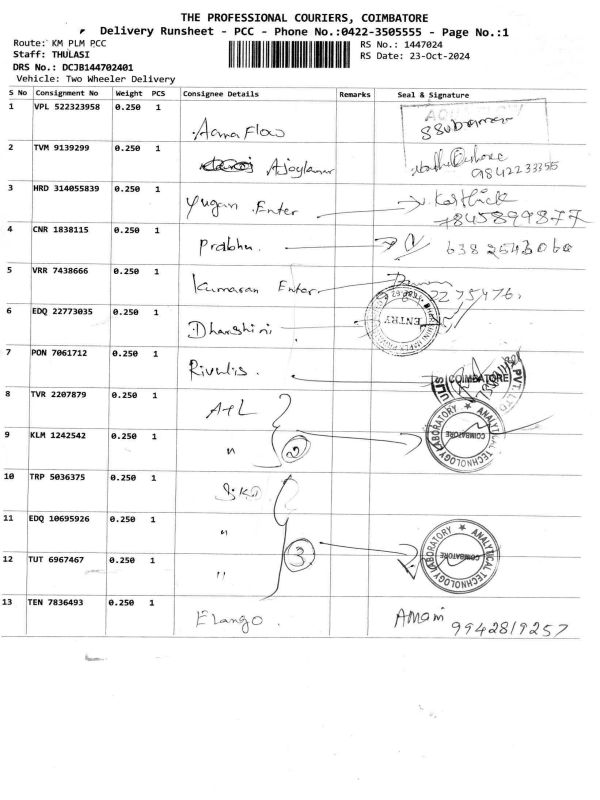 THE PROFESSIONAL COURIERS, COIMBATORE
Delivery Runsheet - PCC - Phone No.:0422-3505555 - Page No.:1
Route: KM PLM PCC
RS No.: 1447024
Staff: THULASI
RS Date: 23-Oct-2024
DRS No.: DCJB144702401
Vehicle: Two Wheeler Delivery
S No Consignment No Weight PCS Consignee Details Remarks Seal & Signature
1 VPL 522323958 0.250 1
Acma Flow
2 TVM 9139299 0.250 1
9842233355
3 HRD 314055839 0.250 1
Yugan Enter Karthick
7845899877
4 CNR 1838115 0.250 1
Prabhu.
5 VRR 7438666 0.250 1
Kumaran Enter
2275476.
6 EDQ 22773035 0.250 1
Dharshini
ENTRY
7 PON 7061712 0.250 1
Rivulis.
COIMBATORE
PVT. LTD
8 TVR 2207879 0.250 1
ATL
9 KLM 1242542 0.250 1
" 2
ANALYTICAL TECHNOLOGY LABORATORY
COIMBATORE
10 TRP 5036375 0.250 1
11 EDQ 10695926 0.250 1
"
3
ANALYTICAL TECHNOLOGY LABORATORY
COIMBATORE
12 TUT 6967467 0.250 1
"
13 TEN 7836493 0.250 1
Elango. 9942819257